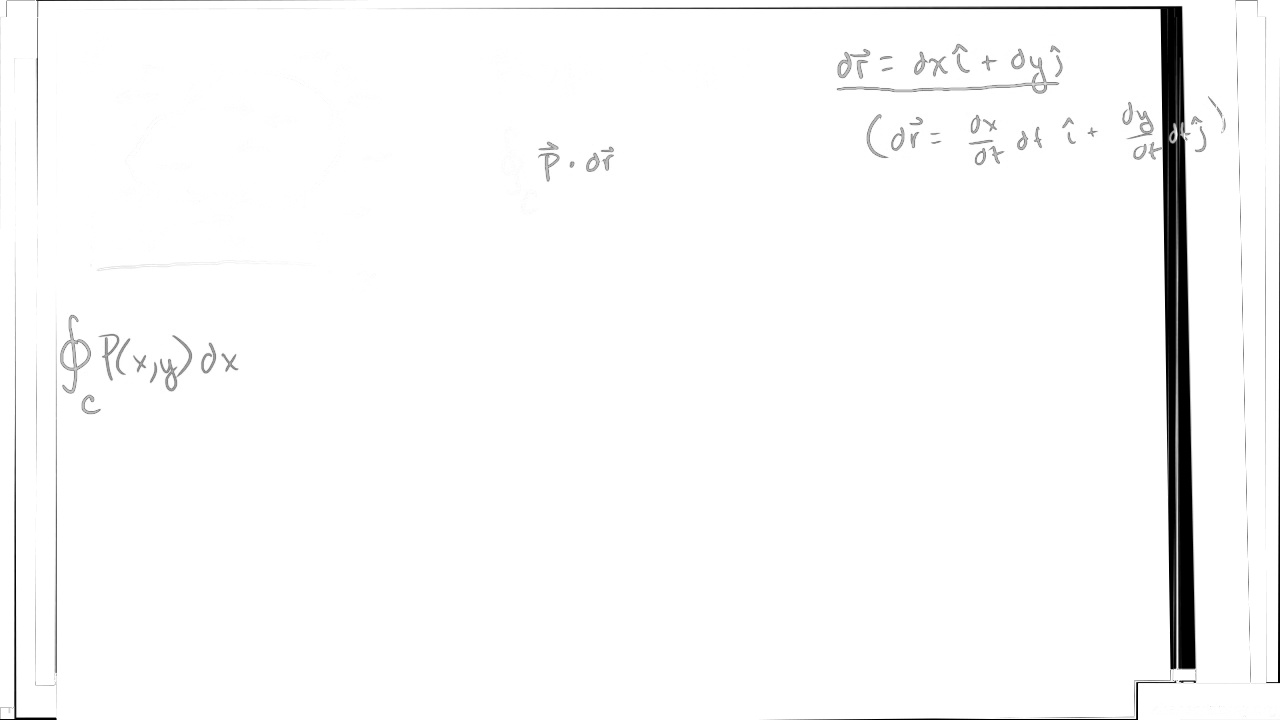 dr⃗ = dx î + dy ĵ
(dr⃗ = dx/dt dt î + dy/dt dt ĵ)
P⃗ · dr⃗
∮_C P(x,y) dx